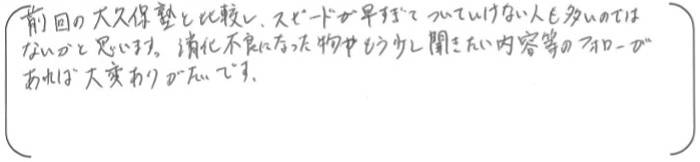 前回の大久保塾と比較し、スピードが早すぎてついていけない人も多いのでは
ないかと思います。消化不良になった物やもう少し聞きたい内容等のフォローが
あれば大変ありがたいです。